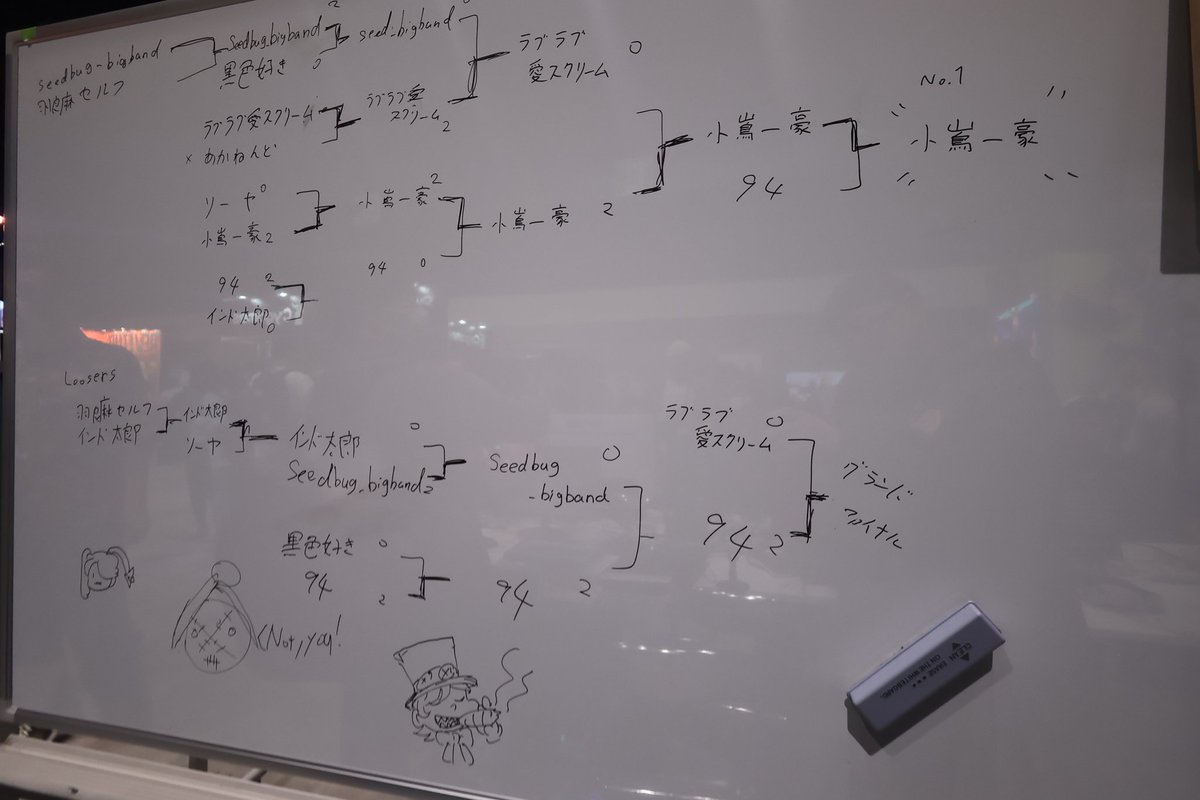 seedbug-bigband
羽麻セルフ
Seedbug_bigband 2
黒色好き 0
seed_bigband 0
ラブラブ愛スクリーム
× あかねんど
ラブラブ愛
スクリーム 2
ラブラブ 0
愛スクリーム
ソーヤ 0
小嶌一豪 2
小嶌一豪 2
94 0
94 2
インド太郎 0
小嶌一豪 2
小嶌一豪
94
No.1
小嶌一豪
Loosers
羽麻セルフ
インド太郎
インド太郎
ソーヤ
インド太郎 0
Seedbug_bigband 2
黒色好き 0
94 2
Seedbug 0
-bigband
94 2
ラブラブ 0
愛スクリーム
94 2
グランド
ファイナル
CLEAN ERASE
ON THE WHITEBOARD